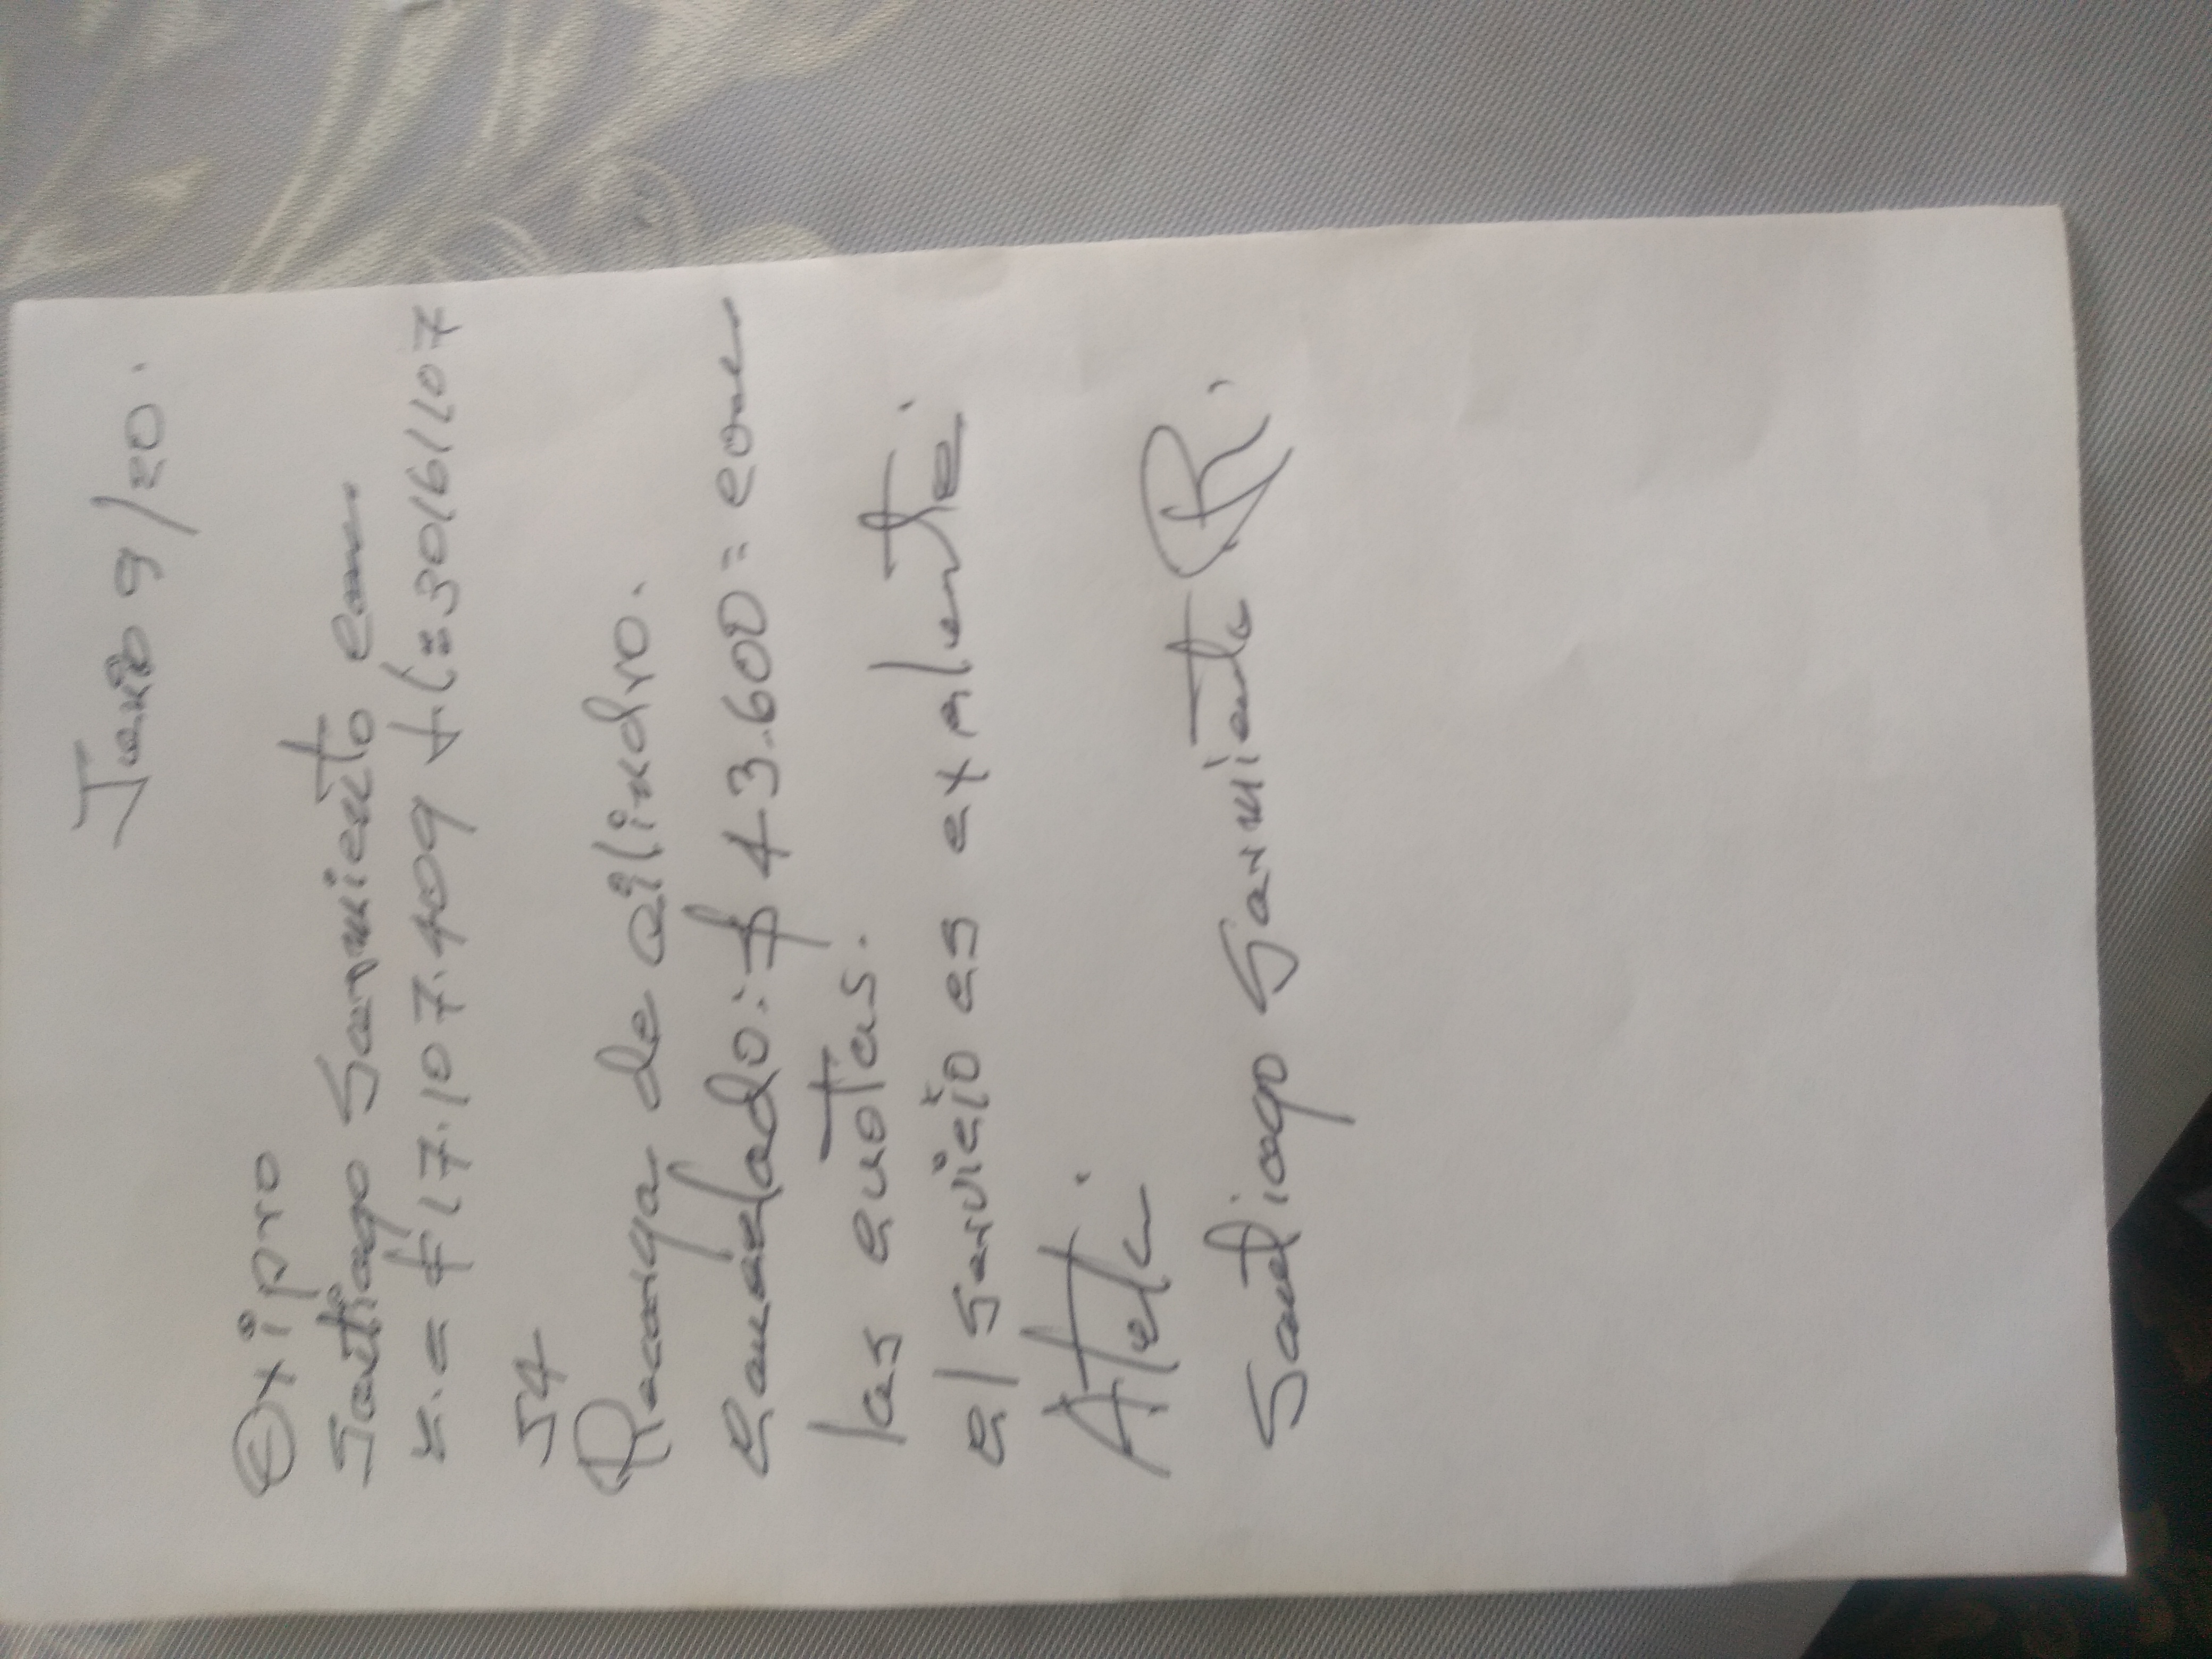 Junio 9/20.
Oxipro
Santiago Sarmiento con
c.c # 17.107.409 t(=30161107
54
Recarga de cilindro.
cancelado: $ 43.600= con
las cuotas.
el servicio es exelente.
Atte.
Santiago Sarmiento R.